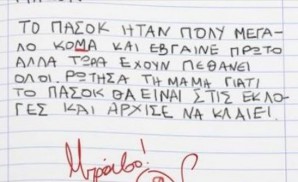 ΤΟ ΠΑΣΟΚ ΗΤΑΝ ΠΟΛΥ ΜΕΓΑ
ΛΟ ΚΟΜΑ ΚΑΙ ΕΒΓΑΙΝΕ ΠΡΩΤΟ
ΑΛΛΑ ΤΩΡΑ ΕΧΟΥΝ ΠΕΘΑΝΕΙ
ΟΛΟΙ. ΡΩΤΗΣΑ ΤΗ ΜΑΜΑ ΓΙΑΤΙ
ΤΟ ΠΑΣΟΚ ΘΑ ΕΙΝΑΙ ΣΤΙΣ ΕΚΛΟ
ΓΕΣ ΚΑΙ ΑΡΧΙΣΕ ΝΑ ΚΛΑΙΕΙ.
Μπράβο!